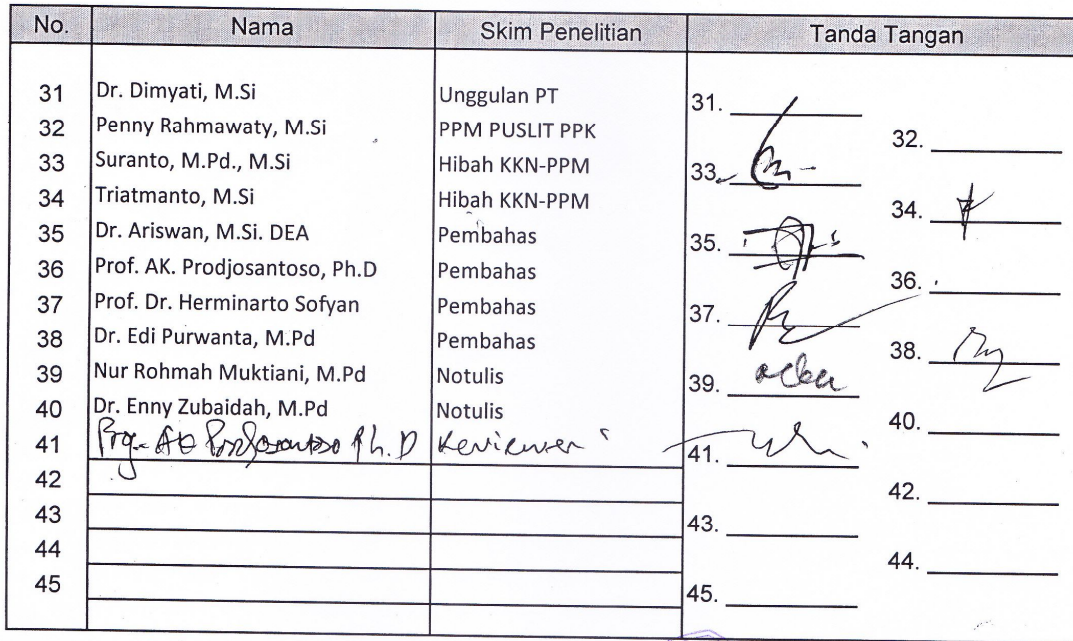 No. Nama Skim Penelitian Tanda Tangan
31 Dr. Dimyati, M.Si Unggulan PT 31.
32 Penny Rahmawaty, M.Si PPM PUSLIT PPK 32.
33 Suranto, M.Pd., M.Si Hibah KKN-PPM 33.
34 Triatmanto, M.Si Hibah KKN-PPM 34.
35 Dr. Ariswan, M.Si. DEA Pembahas 35.
36 Prof. AK. Prodjosantoso, Ph.D Pembahas 36.
37 Prof. Dr. Herminarto Sofyan Pembahas 37.
38 Dr. Edi Purwanta, M.Pd Pembahas 38.
39 Nur Rohmah Muktiani, M.Pd Notulis 39.
40 Dr. Enny Zubaidah, M.Pd Notulis 40.
41 Prof. AK Prodjosantoso Ph.D Reviewer 41.
42 42.
43 43.
44 44.
45 45.